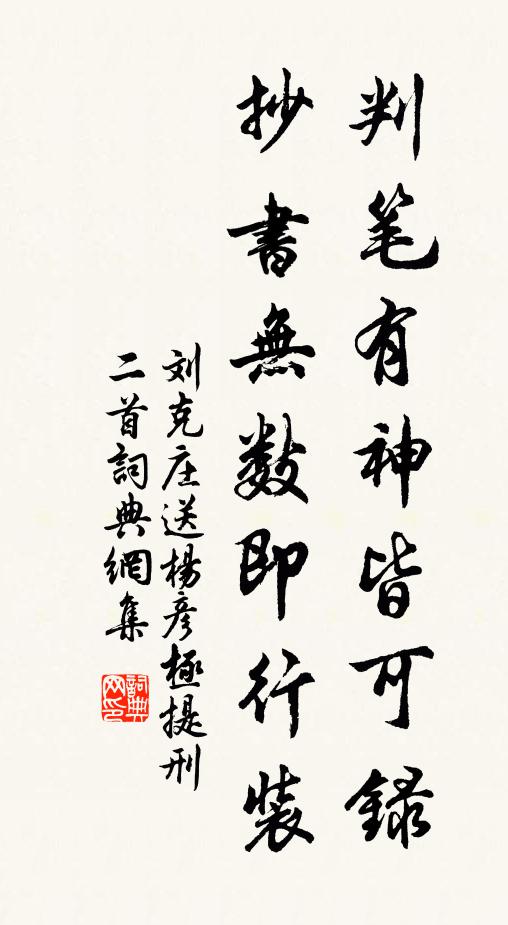 判笔有神皆可録
抄書無数即行裝
刘克庄送楊彦極提刑
二首詞典網集
詞典
网印